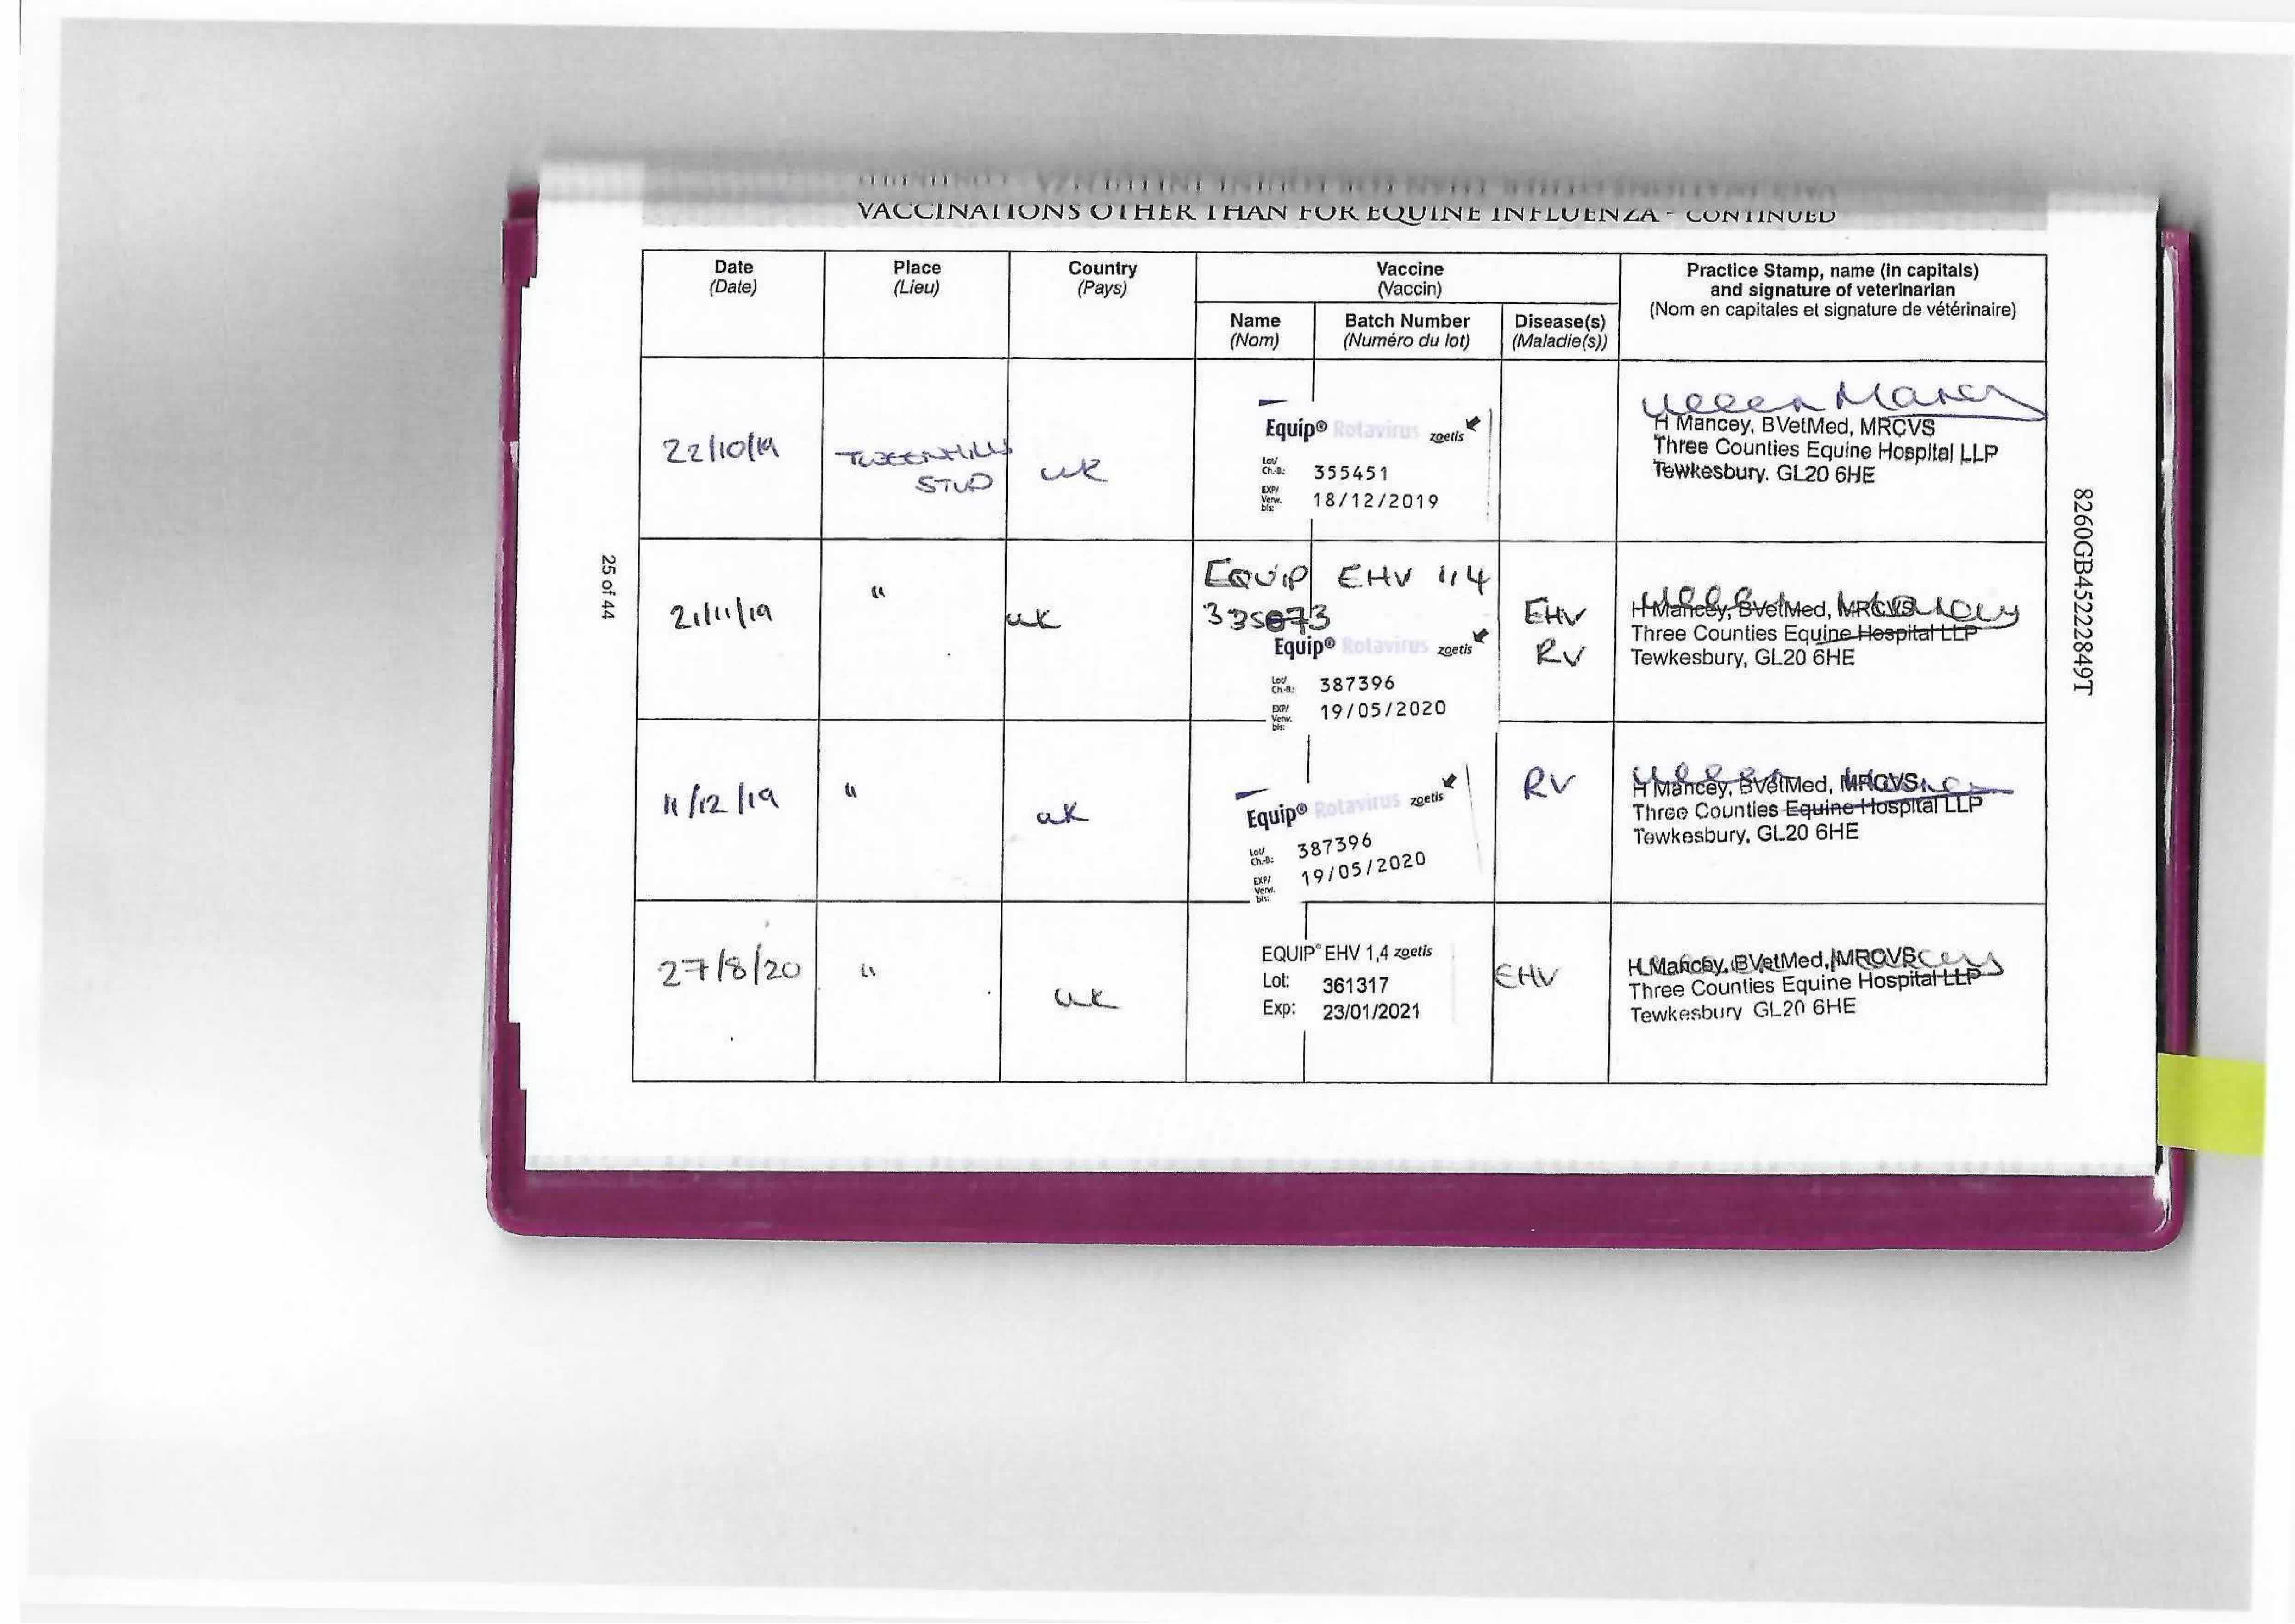 VACCINATIONS OTHER THAN FOR EQUINE INFLUENZA - CONTINUED
Date
(Date)
Place
(Lieu)
Country
(Pays)
Vaccine
(Vaccin)
Name
(Nom)
Batch Number
(Numéro du lot)
Disease(s)
(Maladie(s))
Practice Stamp, name (in capitals)
and signature of veterinarian
(Nom en capitales et signature de vétérinaire)
22/10/19
TWEENHILLS
STUD
UK
Equip® Rotavirus zoetis
Lot/
Ch.-B.: 355451
EXP/
Verw.
bis: 18/12/2019
H Mancey, BVetMed, MRCVS
Three Counties Equine Hospital LLP
Tewkesbury. GL20 6HE
21/11/19
"
UK
EQUIP EHV 1,4
335073
Equip® Rotavirus zoetis
Lot/
Ch.-B.: 387396
EXP/
Verw.
bis: 19/05/2020
EHV
RV
H Mancey, BVetMed, MRCVS
Three Counties Equine Hospital LLP
Tewkesbury, GL20 6HE
11/12/19
"
UK
Equip® Rotavirus zoetis
Lot/
Ch.-B.: 387396
EXP/
Verw.
bis: 19/05/2020
RV
H Mancey, BVetMed, MRCVS
Three Counties Equine Hospital LLP
Tewkesbury, GL20 6HE
27/8/20
"
UK
EQUIP® EHV 1,4 zoetis
Lot: 361317
Exp: 23/01/2021
EHV
H Mancey, BVetMed, MRCVS
Three Counties Equine Hospital LLP
Tewkesbury GL20 6HE
25 of 44
8260GB45222849T